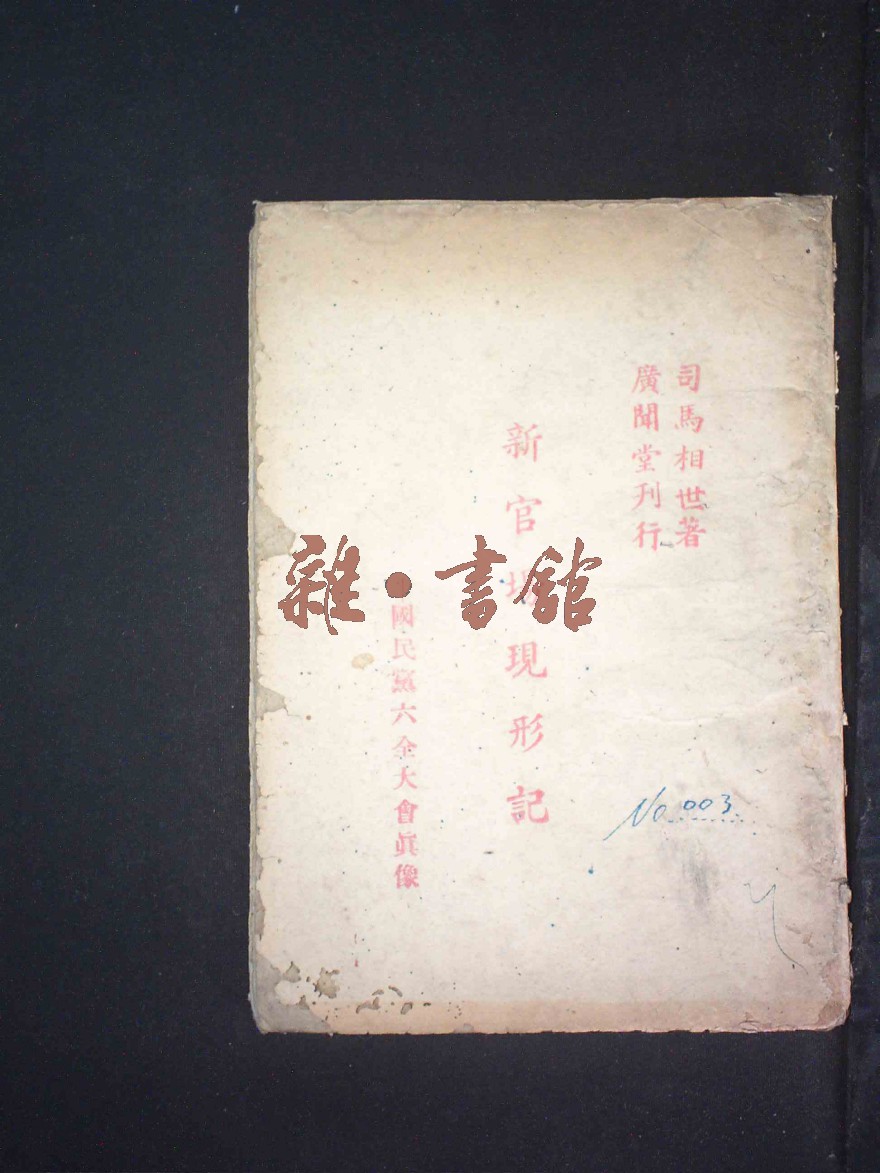 司馬相世著
廣聞堂刊行
新官場現形記
國民黨六全大會眞像
No 003
雜·書館